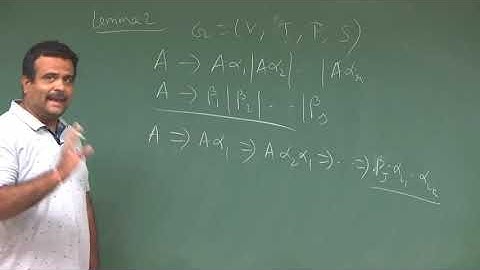 Lemma 2
G = (V, T, P, S)
A → Aα₁|Aα₂| ⋯ |Aαᵣ
A → β₁|β₂| ⋯ |βₛ
A ⇒ Aα₁ ⇒ Aα₂α₁ ⇒ ⋯ ⇒